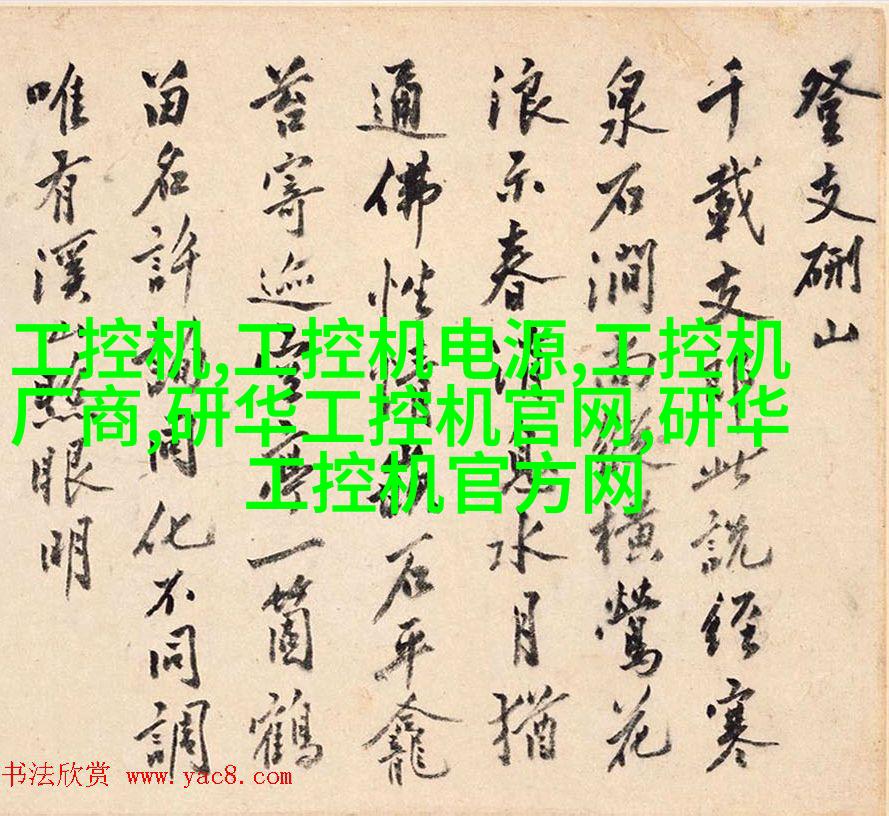 登支硎山
千載支此說經寒
泉石澗尚橫鶯花
浪示春消息水月猶
通佛性情石平龕
苔寄一箇鶴
留名許詢同化不同調
唯有溪山照眼明
工控机,工控机电源,工控机
厂商,研华工控机官网,研华
工控机官方网
书法欣赏 www.yac8.com